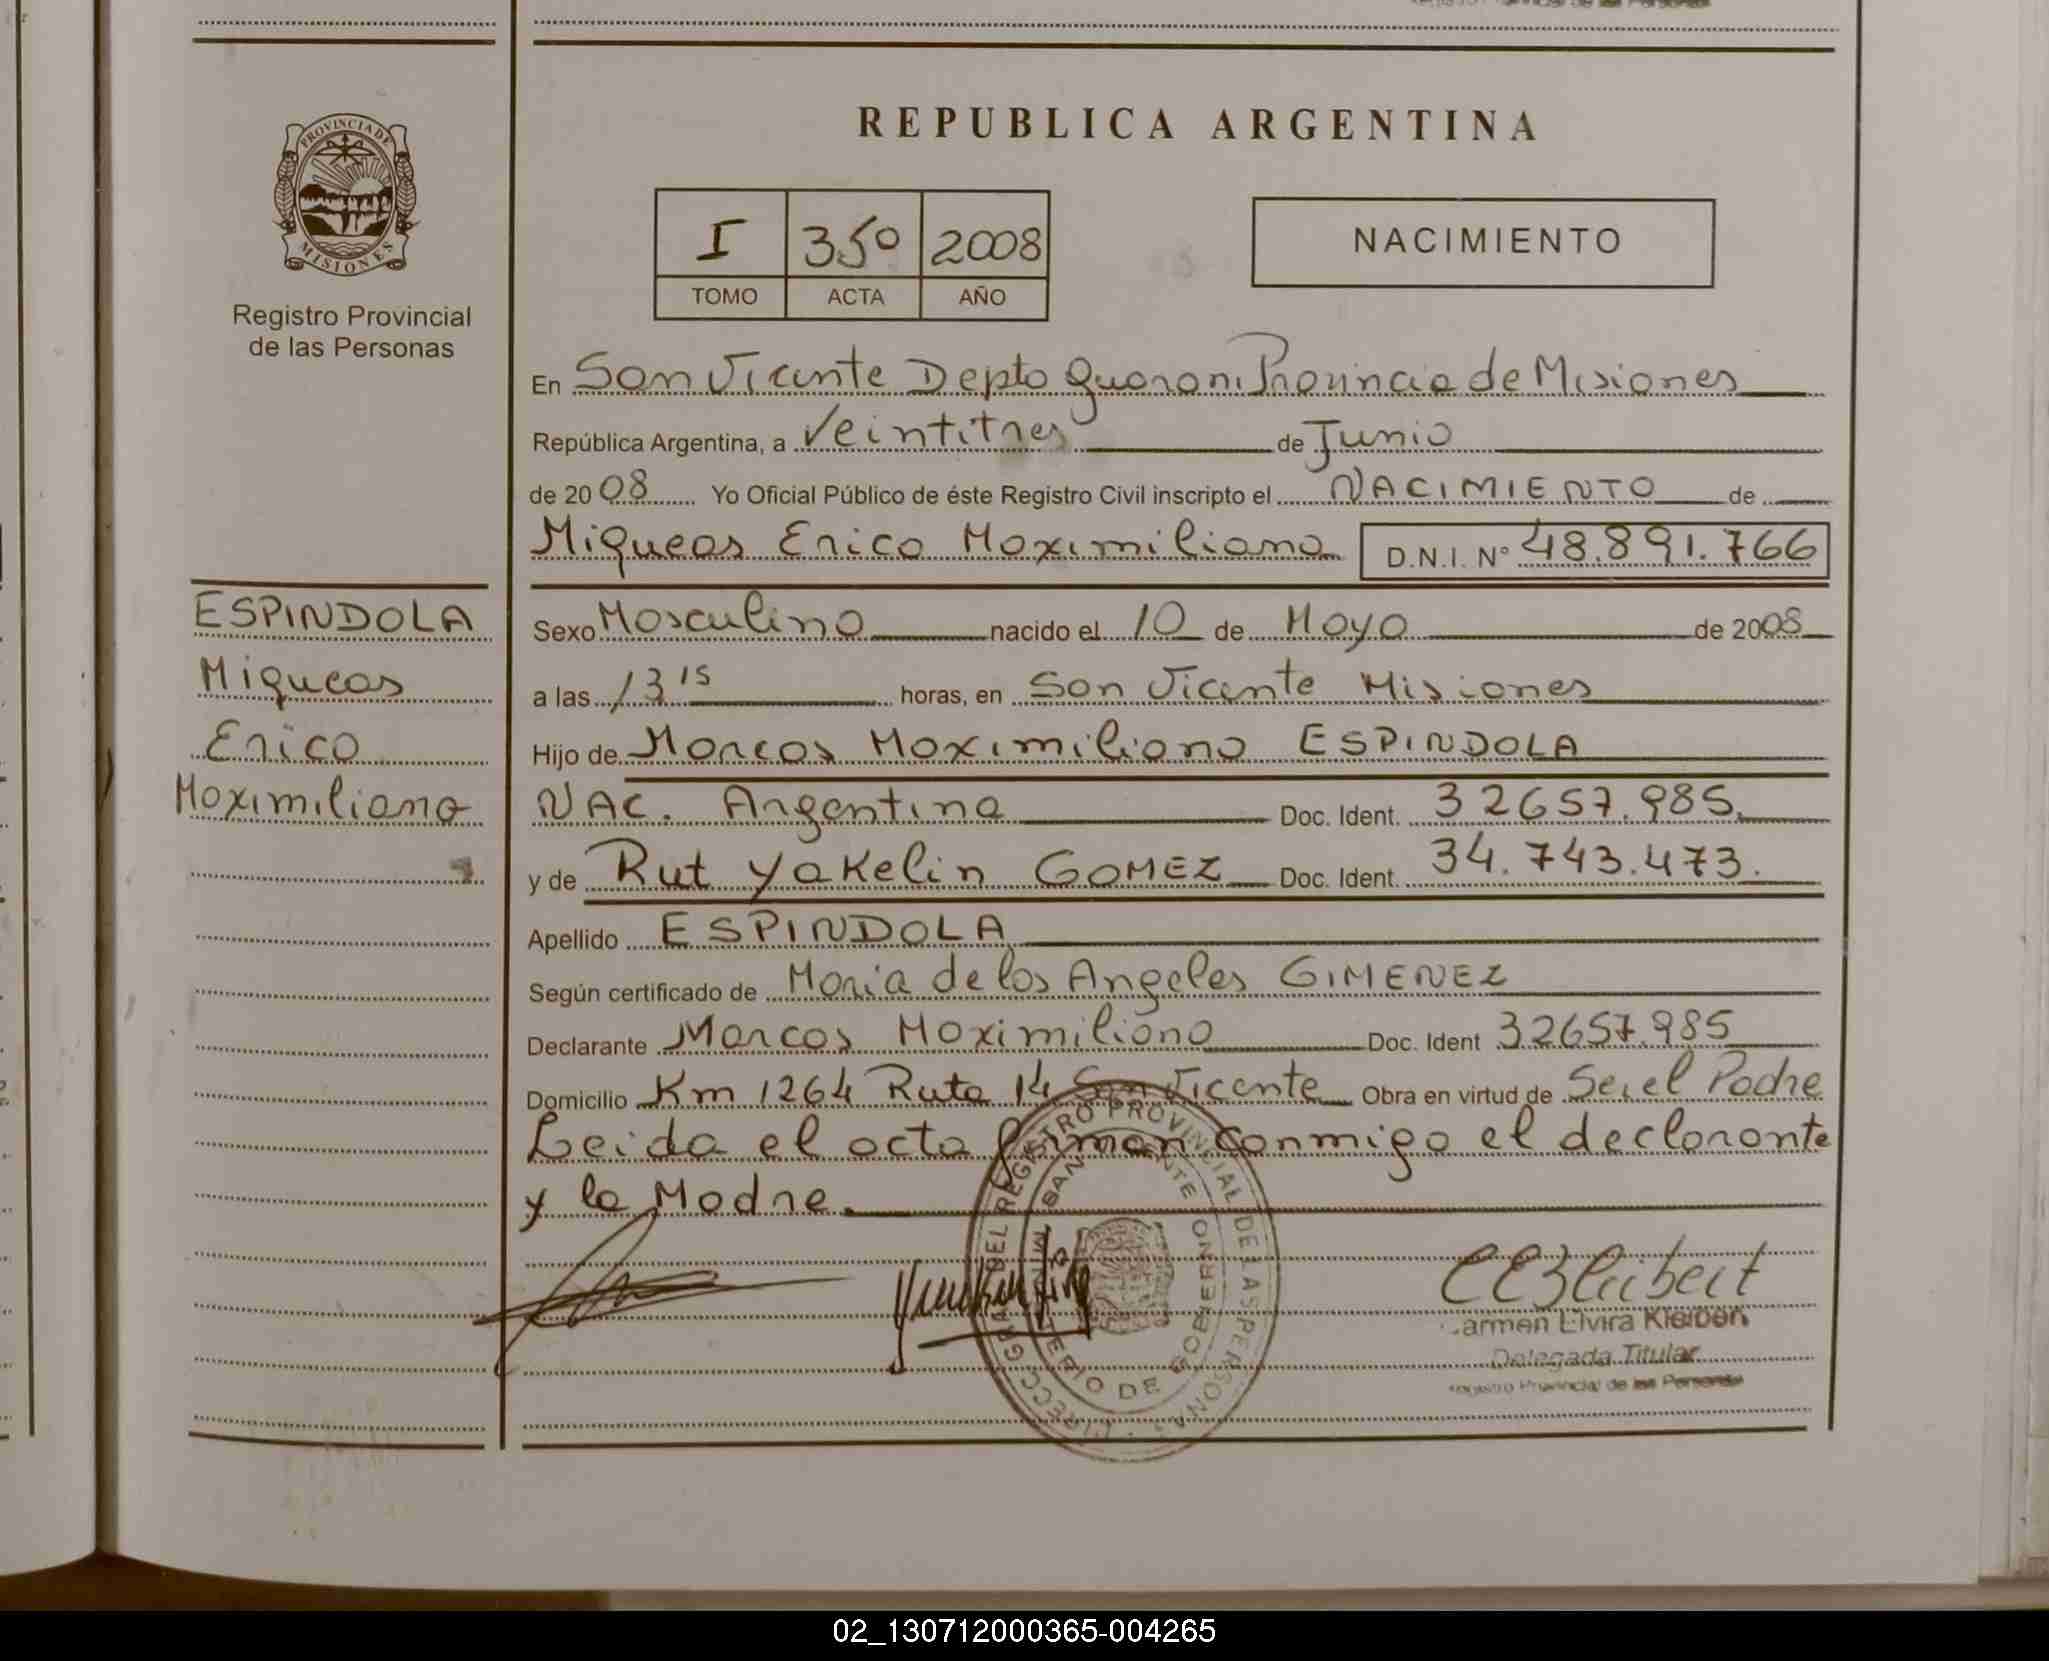 REPUBLICA ARGENTINA
PROVINCIA DE
MISIONES
Registro Provincial
de las Personas
I 350 2008
TOMO ACTA AÑO
NACIMIENTO
En San Vicente Depto Guarani Provincia de Misiones
República Argentina, a Veintitres de Junio
de 2008 Yo Oficial Público de éste Registro Civil inscripto el NACIMIENTO de
Miqueas Erico Maximiliano D.N.I. Nº 48.891.766
ESPINDOLA
Miqueas
Erico
Maximiliano
Sexo Masculino nacido el 10 de Mayo de 2008
a las 13 15 horas, en San Vicente Misiones
Hijo de Marcos Maximiliano ESPINDOLA
NAC. Argentina Doc. Ident. 32657.985.
y de Rut Yakelin GOMEZ Doc. Ident. 34.743.473.
Apellido ESPINDOLA
Según certificado de Maria de los Angeles GIMENEZ
Declarante Marcos Maximiliano Doc. Ident 32657.985
Domicilio Km 1264 Ruta 14 San Vicente Obra en virtud de Ser el Padre
Leida el acta firman conmigo el declarante
y la Madre.
REGISTRO PROVINCIAL DE LAS PERSONAS
MINISTERIO DE GOBIERNO
Carmen Elvira Kleibert
Delegada Titular
Registro Provincial de las Personas
02_130712000365-004265